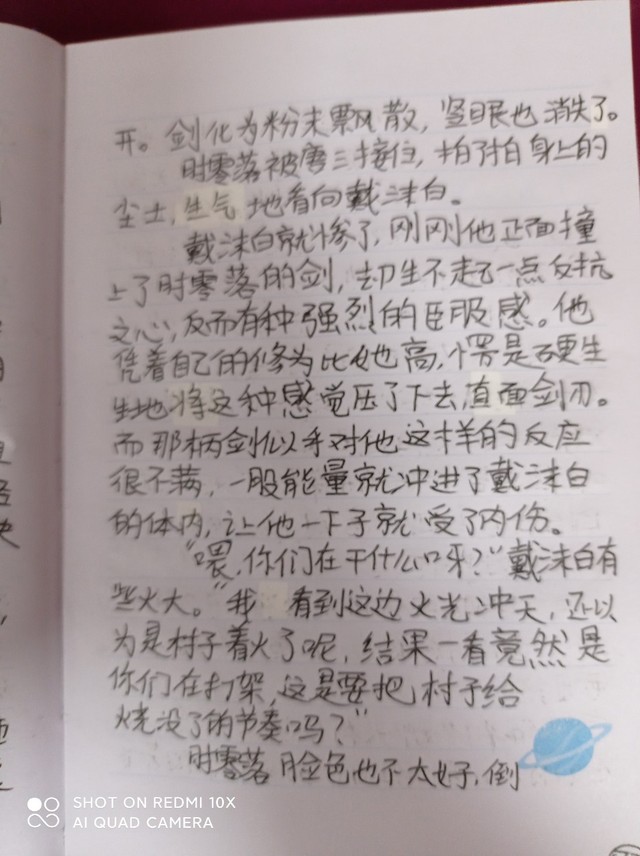 开。剑化为粉末飘散，竖眼也消失了。
时零落被唐三接住，拍了拍身上的
尘土，生气地看向戴沐白。
戴沐白就惨了，刚刚他正面撞
上了时零落的剑，却生不起一点反抗
之心，反而有种强烈的臣服感。他
凭着自己的修为比她高，愣是硬生
生地将这种感觉压了下去直面剑刃。
而那柄剑似乎对他这样的反应
很不满，一股能量就冲进了戴沐白
的体内，让他一下子就受了内伤。
“喂，你们在干什么呀？”戴沐白有
些火大。“我看到这边火光冲天，还以
为是村子着火了呢，结果一看竟然是
你们在打架，这是要把村子给
烧没了的节奏吗？”
时零落脸色也不太好，倒
SHOT ON REDMI 10X
AI QUAD CAMERA